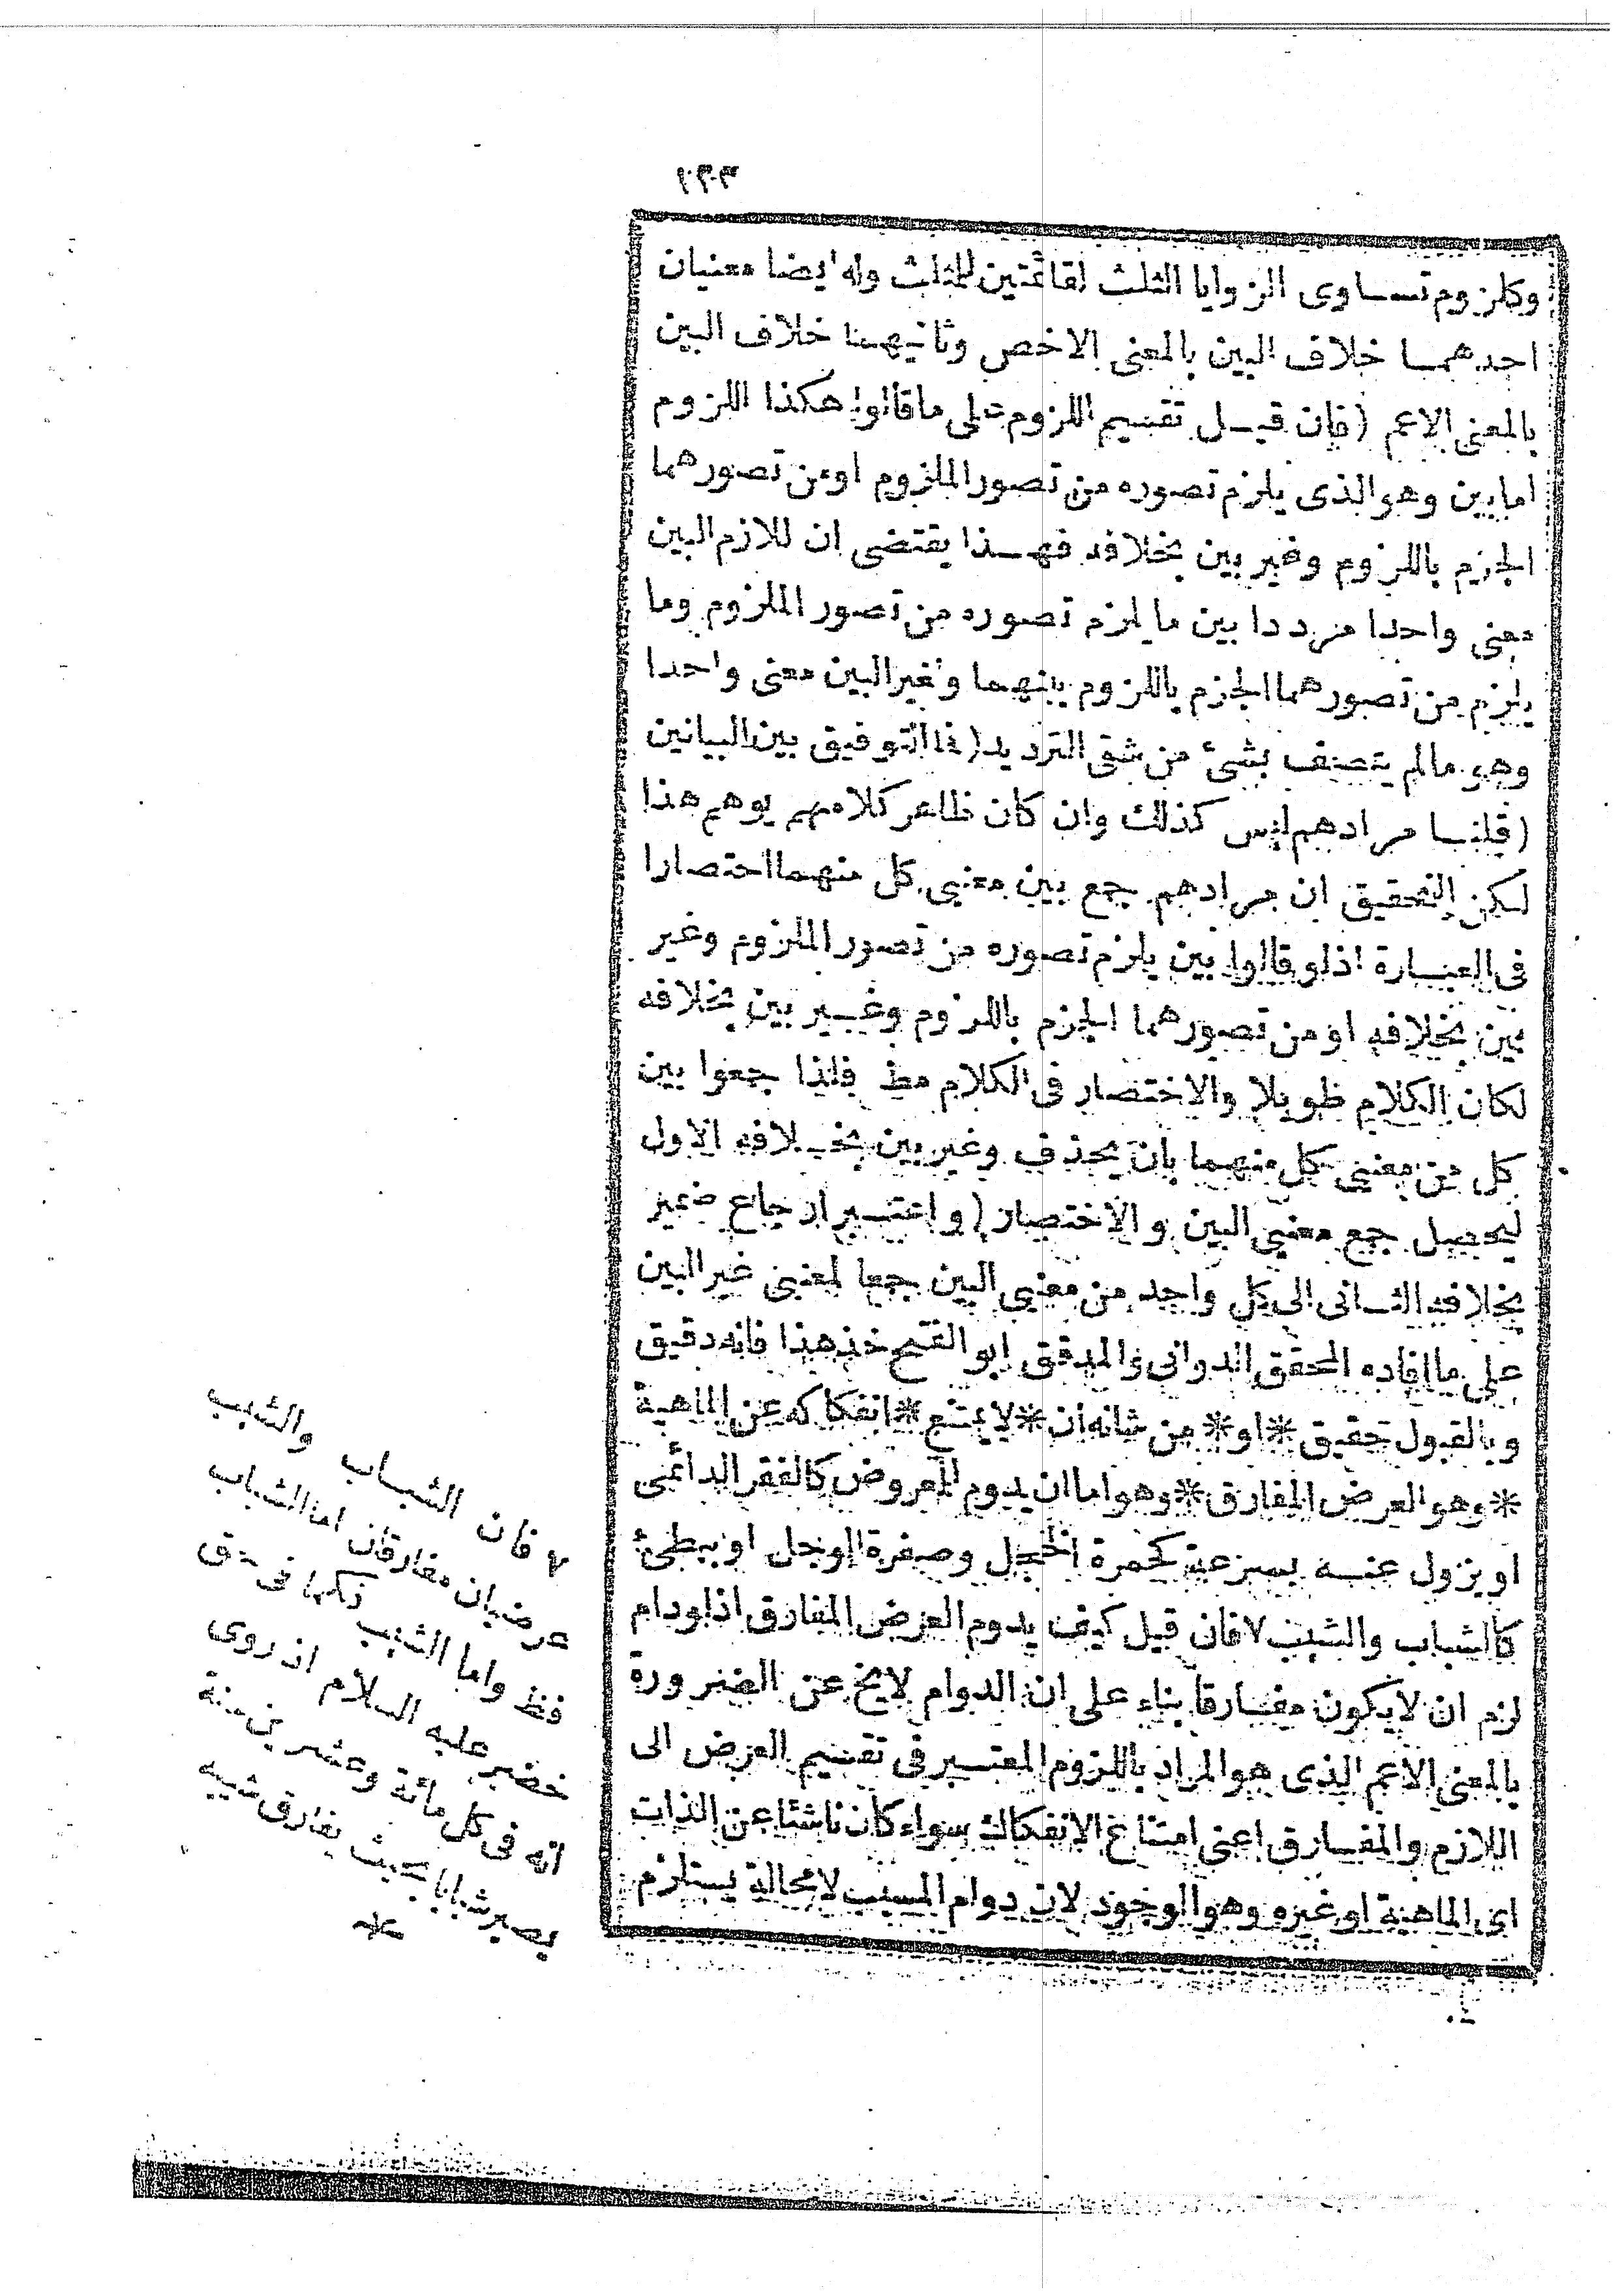 وكلزوم تساوى الزوايا الثلث لقائمتين للمثلث وله ايضا معنيان
احدهما خلاف البين بالمعنى الاخص وثانيهما خلاف البين
بالمعنى الاعم (فان قيل تقسيم اللزوم على ما قالوا هكذا اللزوم
اما بين وهو الذى يلزم تصوره من تصور الملزوم او من تصورهما
الجزم باللزوم وغير بين بخلافه فهذا يقتضى ان للازم البين
معنى واحدا مرددا بين ما يلزم تصوره من تصور الملزوم وما
يلزم من تصورهما الجزم باللزوم بينهما ولغير البين معنى واحدا
وهو ما لم يتصف بشئ من شقى الترديد (فما التوفيق بين البيانين
(قلنا مرادهم ليس كذلك وان كان ظاهر كلامهم يوهم هذا
لكن التحقيق ان مرادهم جمع بين معنيى كل منهما اختصارا
فى العبارة اذ لو قالوا بين يلزم تصوره من تصور الملزوم وغير
بين بخلافه او من تصورهما الجزم باللزوم وغير بين بخلافه
لكان الكلام طويلا والاختصار فى الكلام مط فلذا جمعوا بين
كل من معنيى كل منهما بان يحذف وغير بين بخلافه الاول
ليحصل جمع معنيى البين والاختصار (واعتبر ارجاع ضمير
بخلافه الثانى الى كل واحد من معنيى البين جمعا لمعنيى غير البين
على ما افاده المحقق الدوانى والمدقق ابو الفتح خذ هذا فانه دقيق
وبالقبول حقيق * او * من شانه ان * لا يمتنع * انفكاكه عن الماهية
* وهو العرض المفارق * وهو اما ان يدوم للمعروض كالفقر الدائمى
او يزول عنه بسرعة كحمرة الخجل وصفرة الوجل او ببطئ
كالشباب والشيب لا فان قيل كيف يدوم العرض المفارق اذ لو دام
لزم ان لا يكون مفارقا بناء على ان الدوام لا يخ عن الضرورة
بالمعنى الاعم الذى هو المراد باللزوم المعتبر فى تقسيم العرض الى
اللازم والمفارق اعنى امتناع الانفكاك سواء كان ناشئا عن الذات
اى الماهية او غيره وهو الوجود لان دوام المسبب لا محالة يستلزم
لا فان الشباب والشيب
عرضيان مفارقان اما الشباب
فظ واما الشيب فكما فى حق
خضر عليه السلام اذ روى
انه فى كل مائة وعشرين سنة
يصير شبابا بحيث يفارق شيبه
*